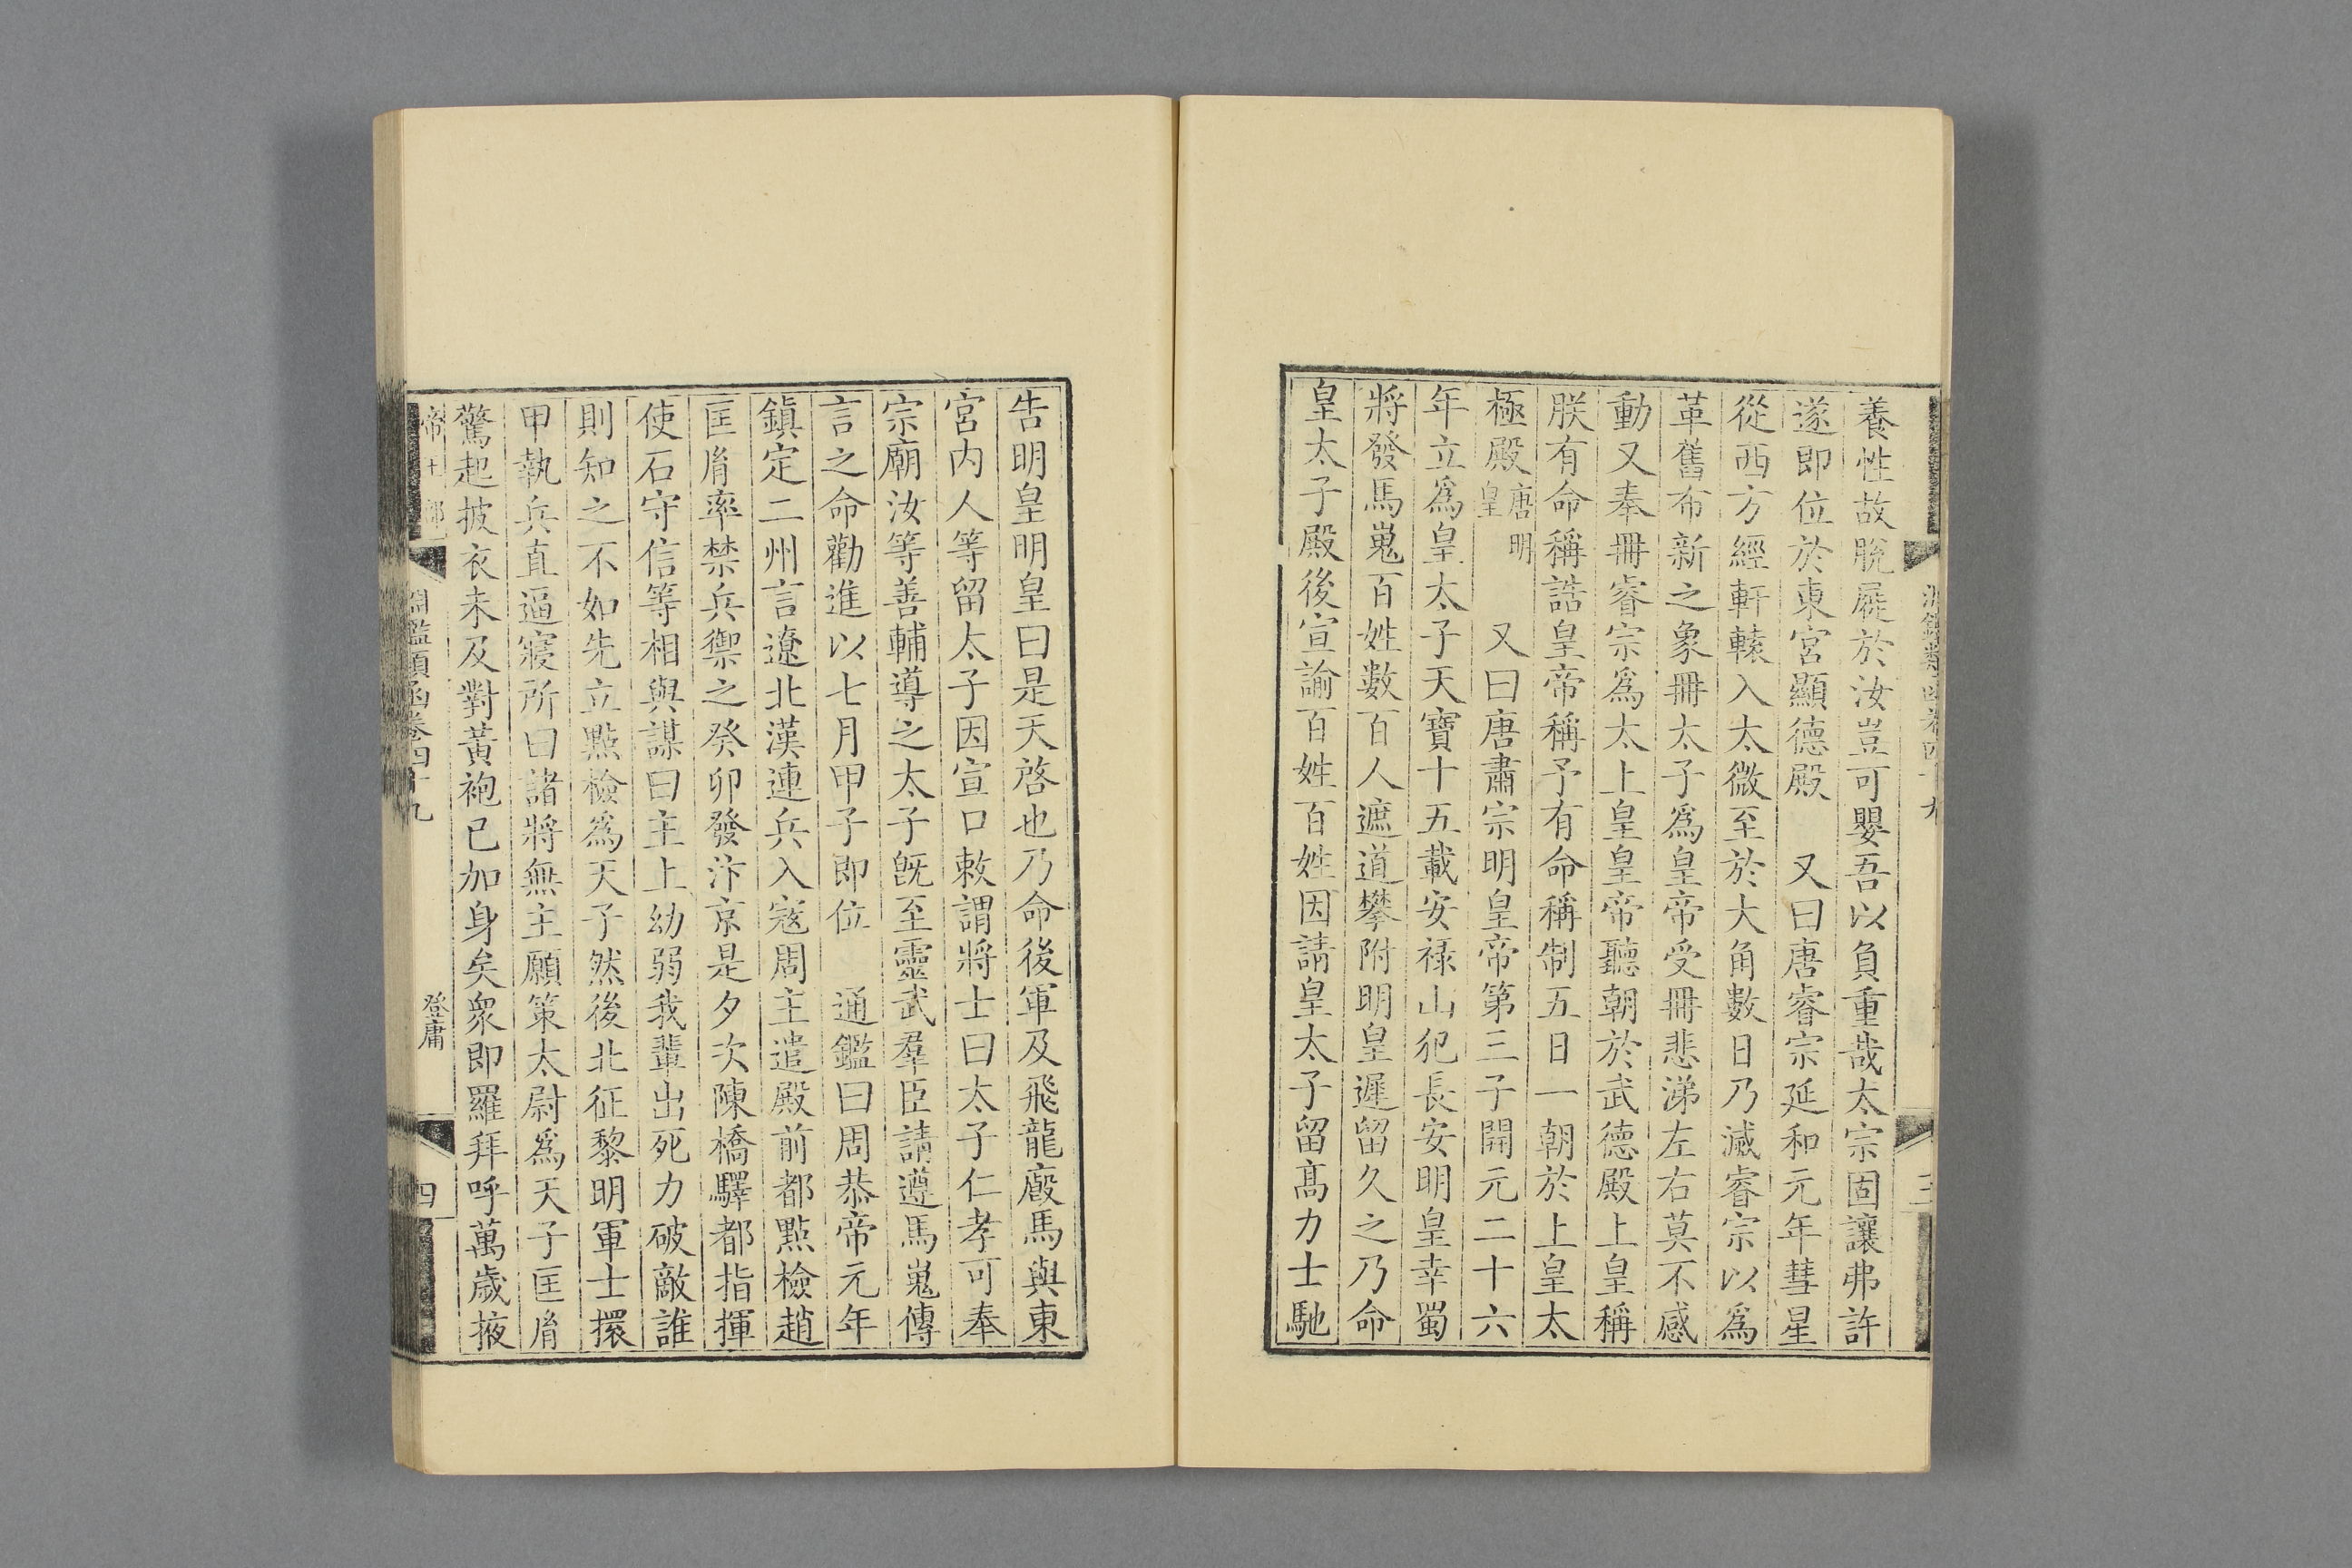 養性故脫屣於汝豈可嬰吾以負重哉太宗固讓弗許
遂即位於東宮顯德殿　又曰唐睿宗延和元年彗星
從西方經軒轅入太微至於大角數日乃滅睿宗以爲
革舊布新之象冊太子爲皇帝受冊悲涕左右莫不感
動又奉冊睿宗爲太上皇皇帝聽朝於武德殿上皇稱
朕有命稱誥皇帝稱予有命稱制五日一朝於上皇太
極殿唐明皇　又曰唐肅宗明皇帝第三子開元二十六
年立爲皇太子天寶十五載安祿山犯長安明皇幸蜀
將發馬嵬百姓數百人遮道攀附明皇遲留久之乃命
皇太子殿後宣諭百姓百姓因請皇太子留髙力士馳
告明皇明皇曰是天啓也乃命後軍及飛龍廐馬與東
宮內人等留太子因宣口敕謂將士曰太子仁孝可奉
宗廟汝等善輔導之太子旣至靈武羣臣請遵馬嵬傳
言之命勸進以七月甲子即位　通鑑曰周恭帝元年
鎮定二州言遼北漢連兵入寇周主遣殿前都點檢趙
匡胤率禁兵禦之癸卯發汴京是夕次陳橋驛都指揮
使石守信等相與謀曰主上幼弱我輩出死力破敵誰
則知之不如先立點檢爲天子然後北征黎明軍士擐
甲執兵直逼寢所曰諸將無主願策太尉爲天子匡胤
驚起披衣未及對黃袍已加身矣衆即羅拜呼萬歲掖
淵鑑類函卷四十九
登庸
四